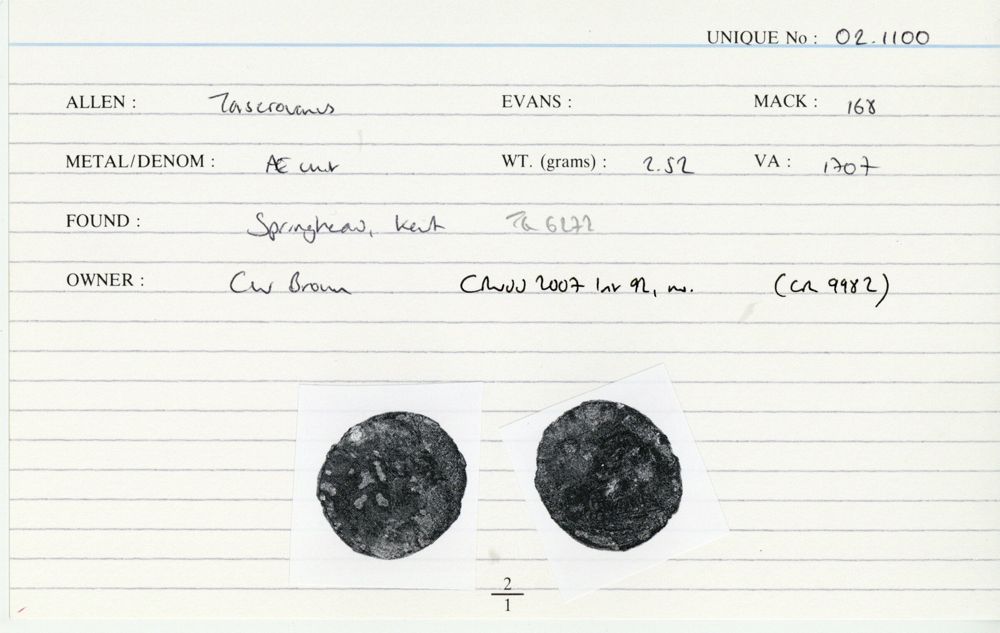 UNIQUE No : 02.1100
ALLEN : Tasciovanus EVANS : MACK : 168
METAL/DENOM : Æ unit WT. (grams) : 2.52 VA : 1707
FOUND : Springhead, Kent TQ 6272
OWNER : CW Brown 2007 92, (CR 9982)
2
1